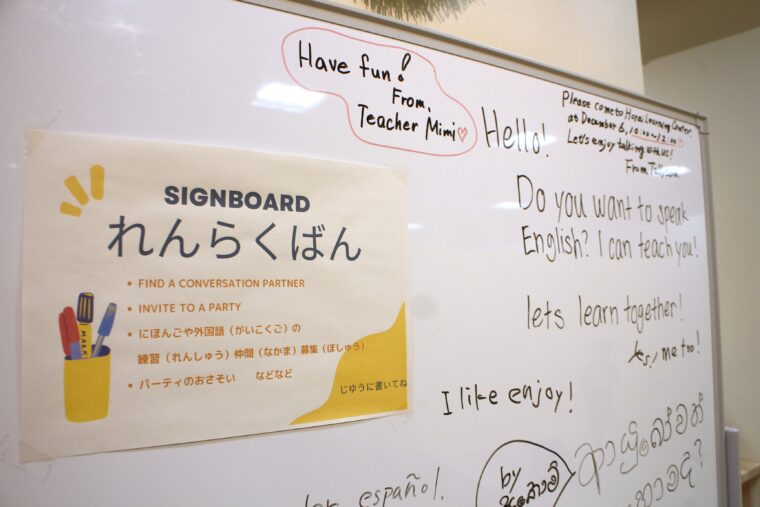 Have fun!
From,
Teacher Mimi♡
Hello!
Please come to Learning Center
at December 6, 10:00~12:00
Let's enjoy talking with us!
From
Do you want to speak
English? I can teach you!
lets learn together!
Yes, me too!
I like enjoy!
SIGNBOARD
れんらくばん
• FIND A CONVERSATION PARTNER
• INVITE TO A PARTY
• にほんごや外国語（がいこくご）の
練習（れんしゅう）仲間（なかま）募集（ぼしゅう）
• パーティのおさそい　などなど
じゆうに書いてね
español.
by
ආයුබෝවන්